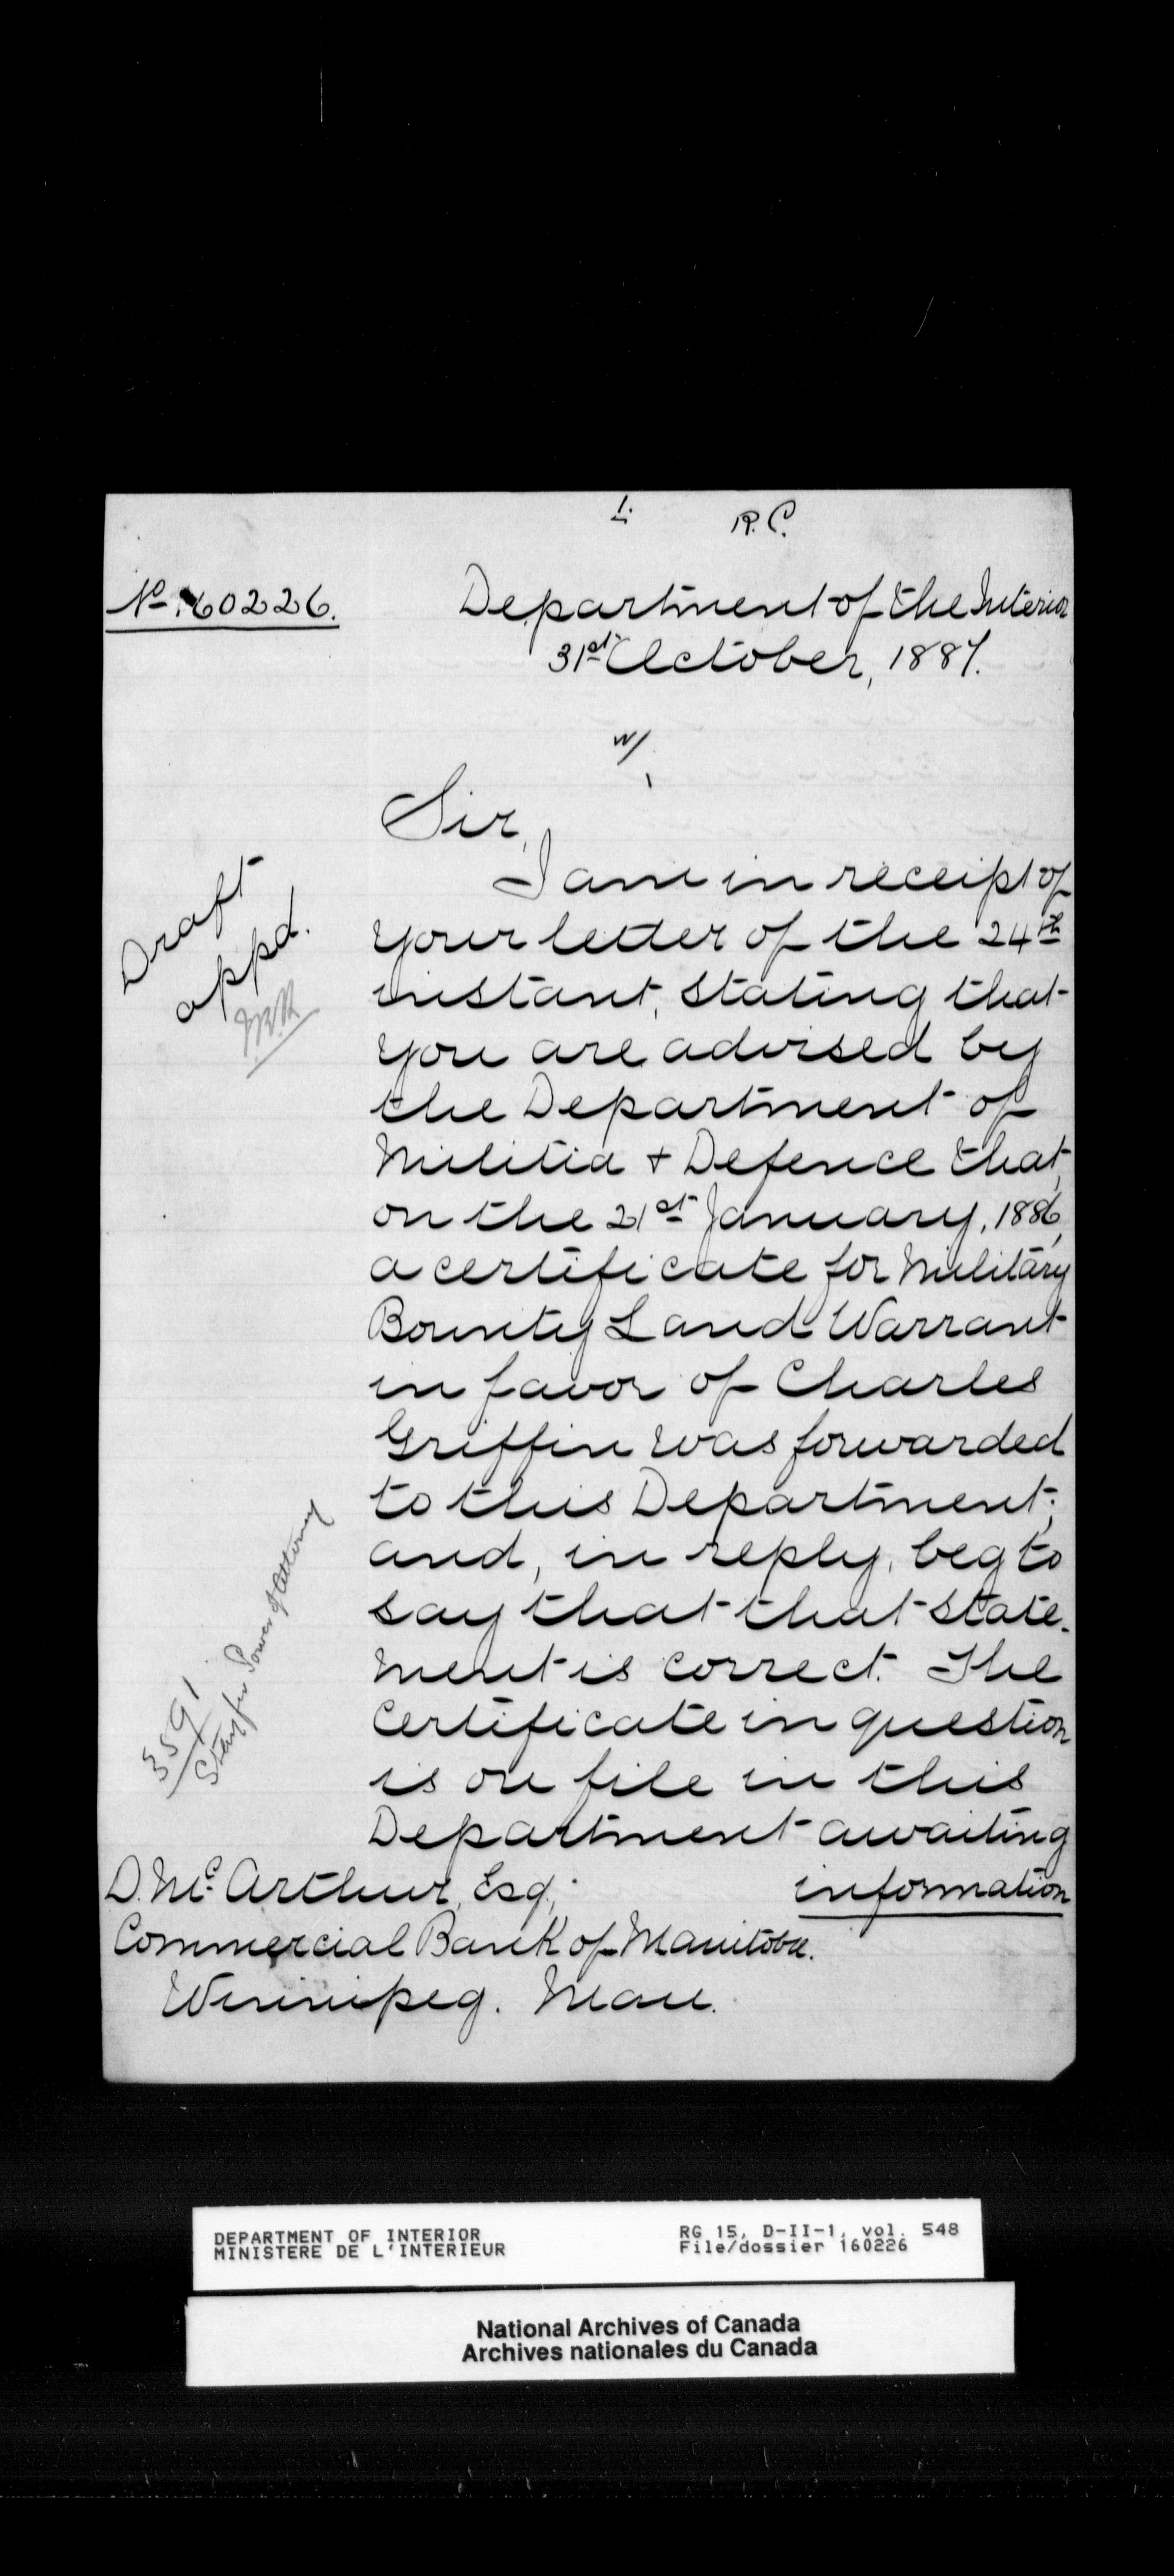 L. R.C.
No. 160226.
Department of the Interior
31st October, 1887.
Sir,
I am in receipt of
your letter of the 24th
instant, stating that
you are advised by
the Department of
Militia + Defence that,
on the 21st January, 1886,
a certificate for Military
Bounty Land Warrant
in favor of Charles
Griffin was forwarded
to this Department;
and, in reply, beg to
say that that state-
ment is correct. The
Certificate in question
is on file in this
Department awaiting
information
Draft
appd.
3591
Power of Attorney
D. Mc. Arthur, Esq.,
Commercial Bank of Manitoba.
Winnipeg. Man.
DEPARTMENT OF INTERIOR
MINISTERE DE L'INTERIEUR
RG 15, D-II-1, vol. 548
File/dossier 160226
National Archives of Canada
Archives nationales du Canada